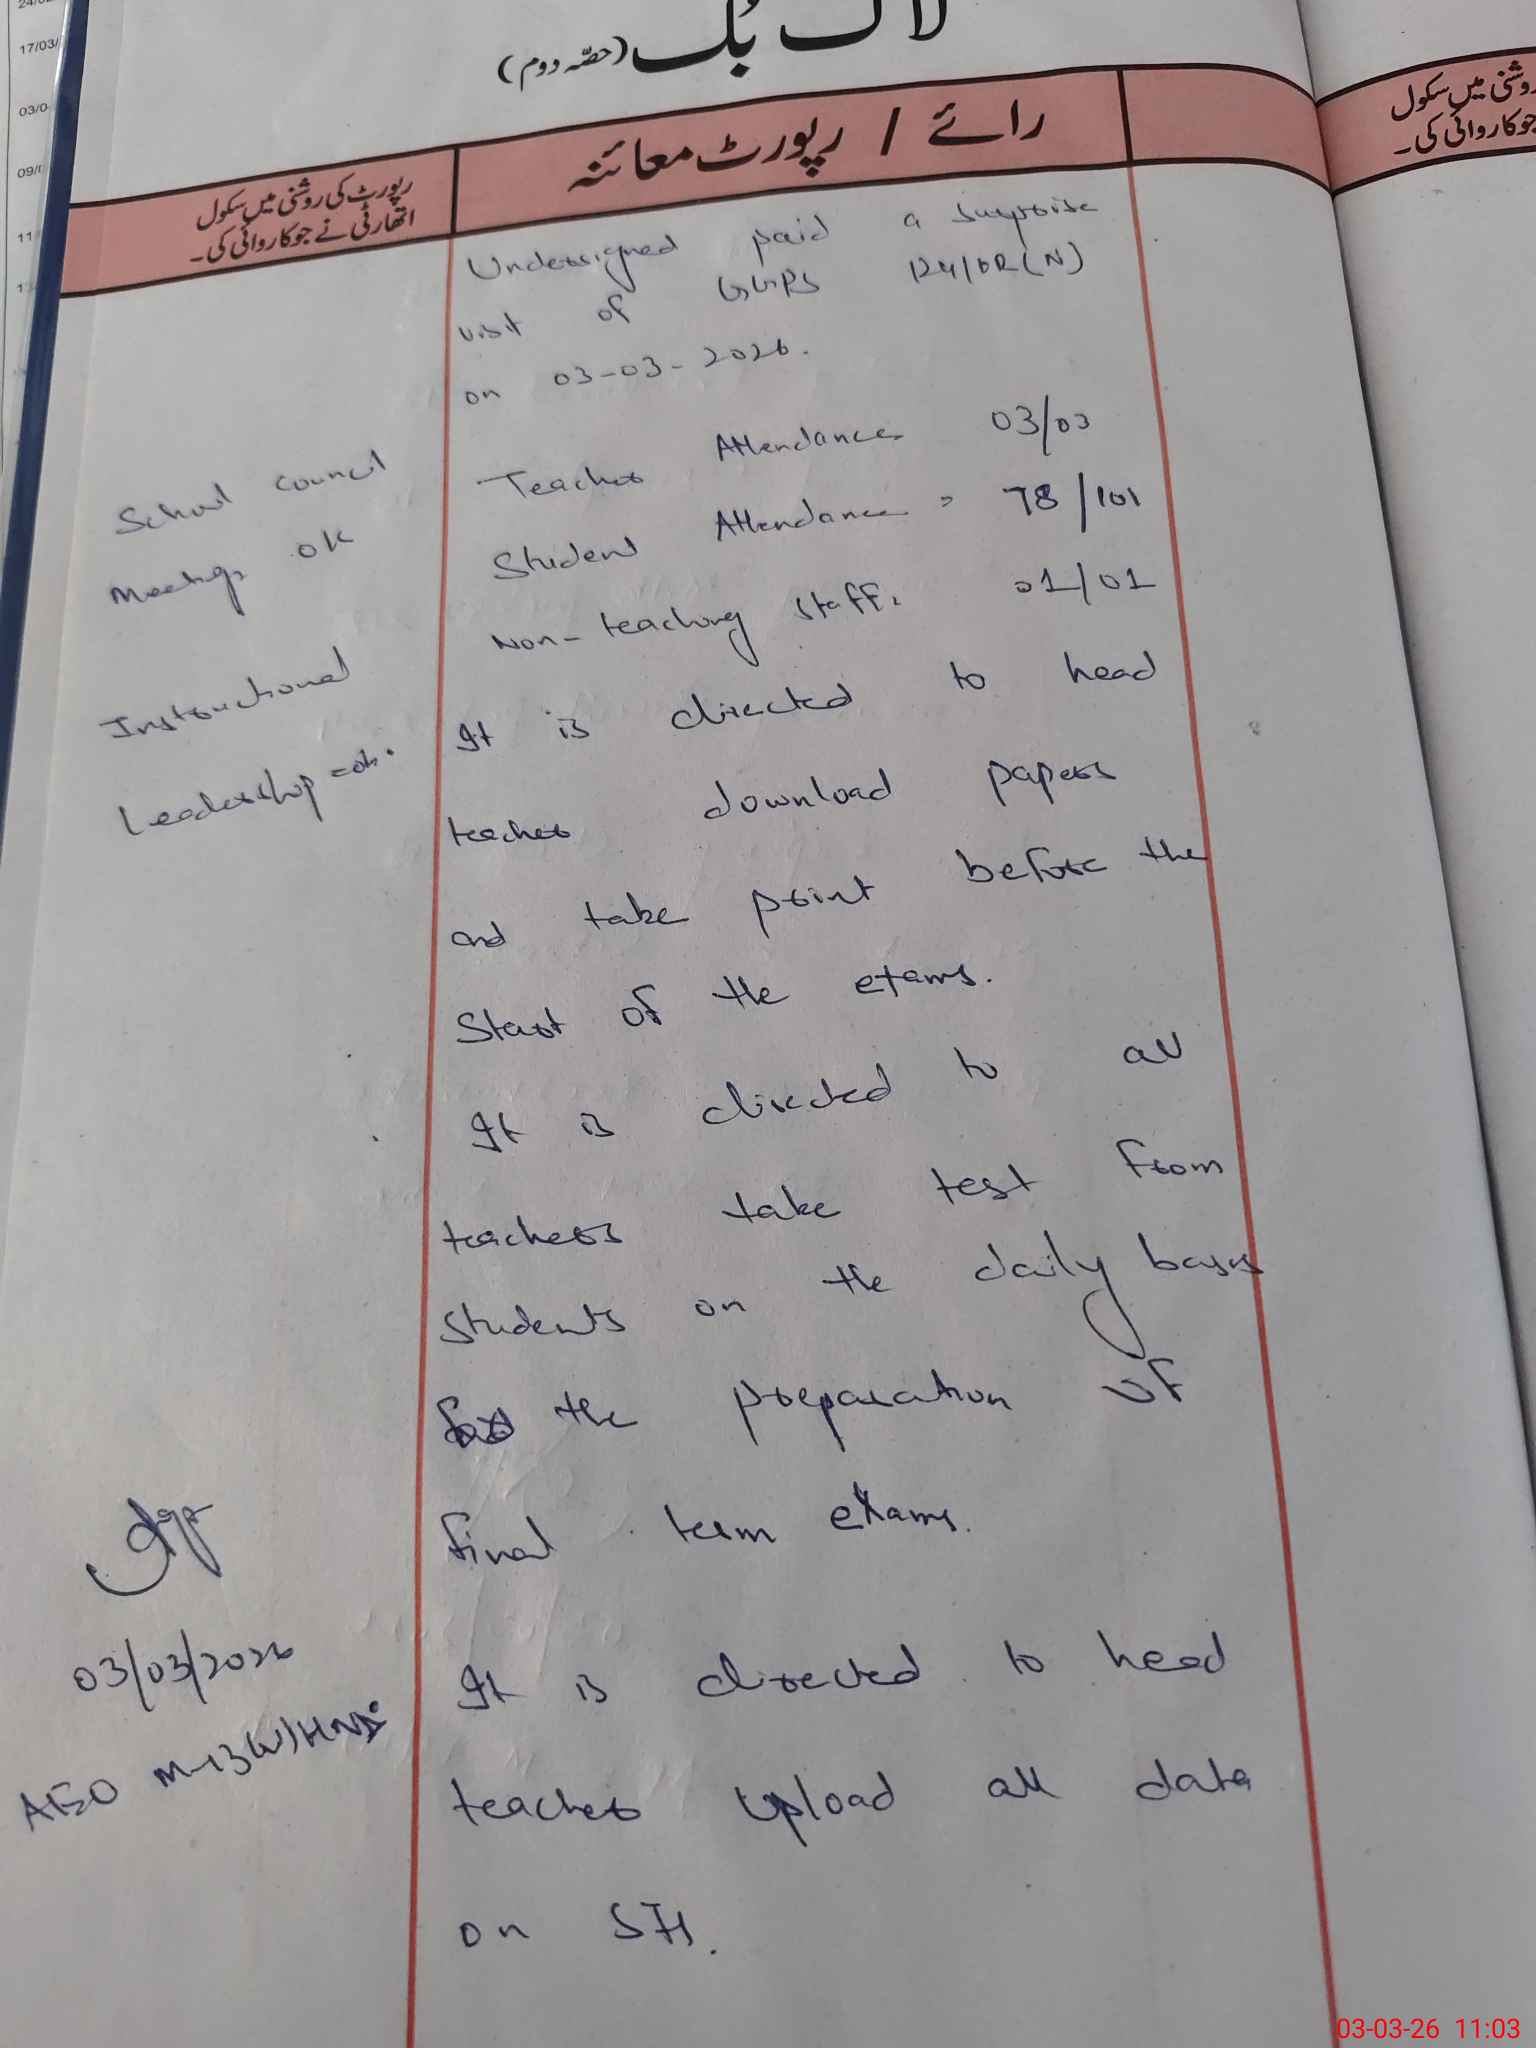 لاگ بُک (حصّہ دوم)
رائے / رپورٹ معائنہ
رپورٹ کی روشنی میں سکول
اتھارٹی نے جو کاروائی کی۔
روشنی میں سکول
جو کاروائی کی۔
17/03/
03/0
09/
11
Undersigned paid a surprise
visit of GGPS 124/6R(N)
on 03-03-2026.
Teacher Attendance 03/03
Student Attendance = 78/101
Non-teaching staff. 01/01
It is directed to head
teacher download papers
and take print before the
start of the exams.
It is directed to all
teachers take test from
students on the daily bases
for the preparation of
final term exams.
It is directed to head
teacher upload all data
on
School council
Meetings ok
Instructional
Leadership = ok.
03/03/2026
AEO
03-03-26 11:03